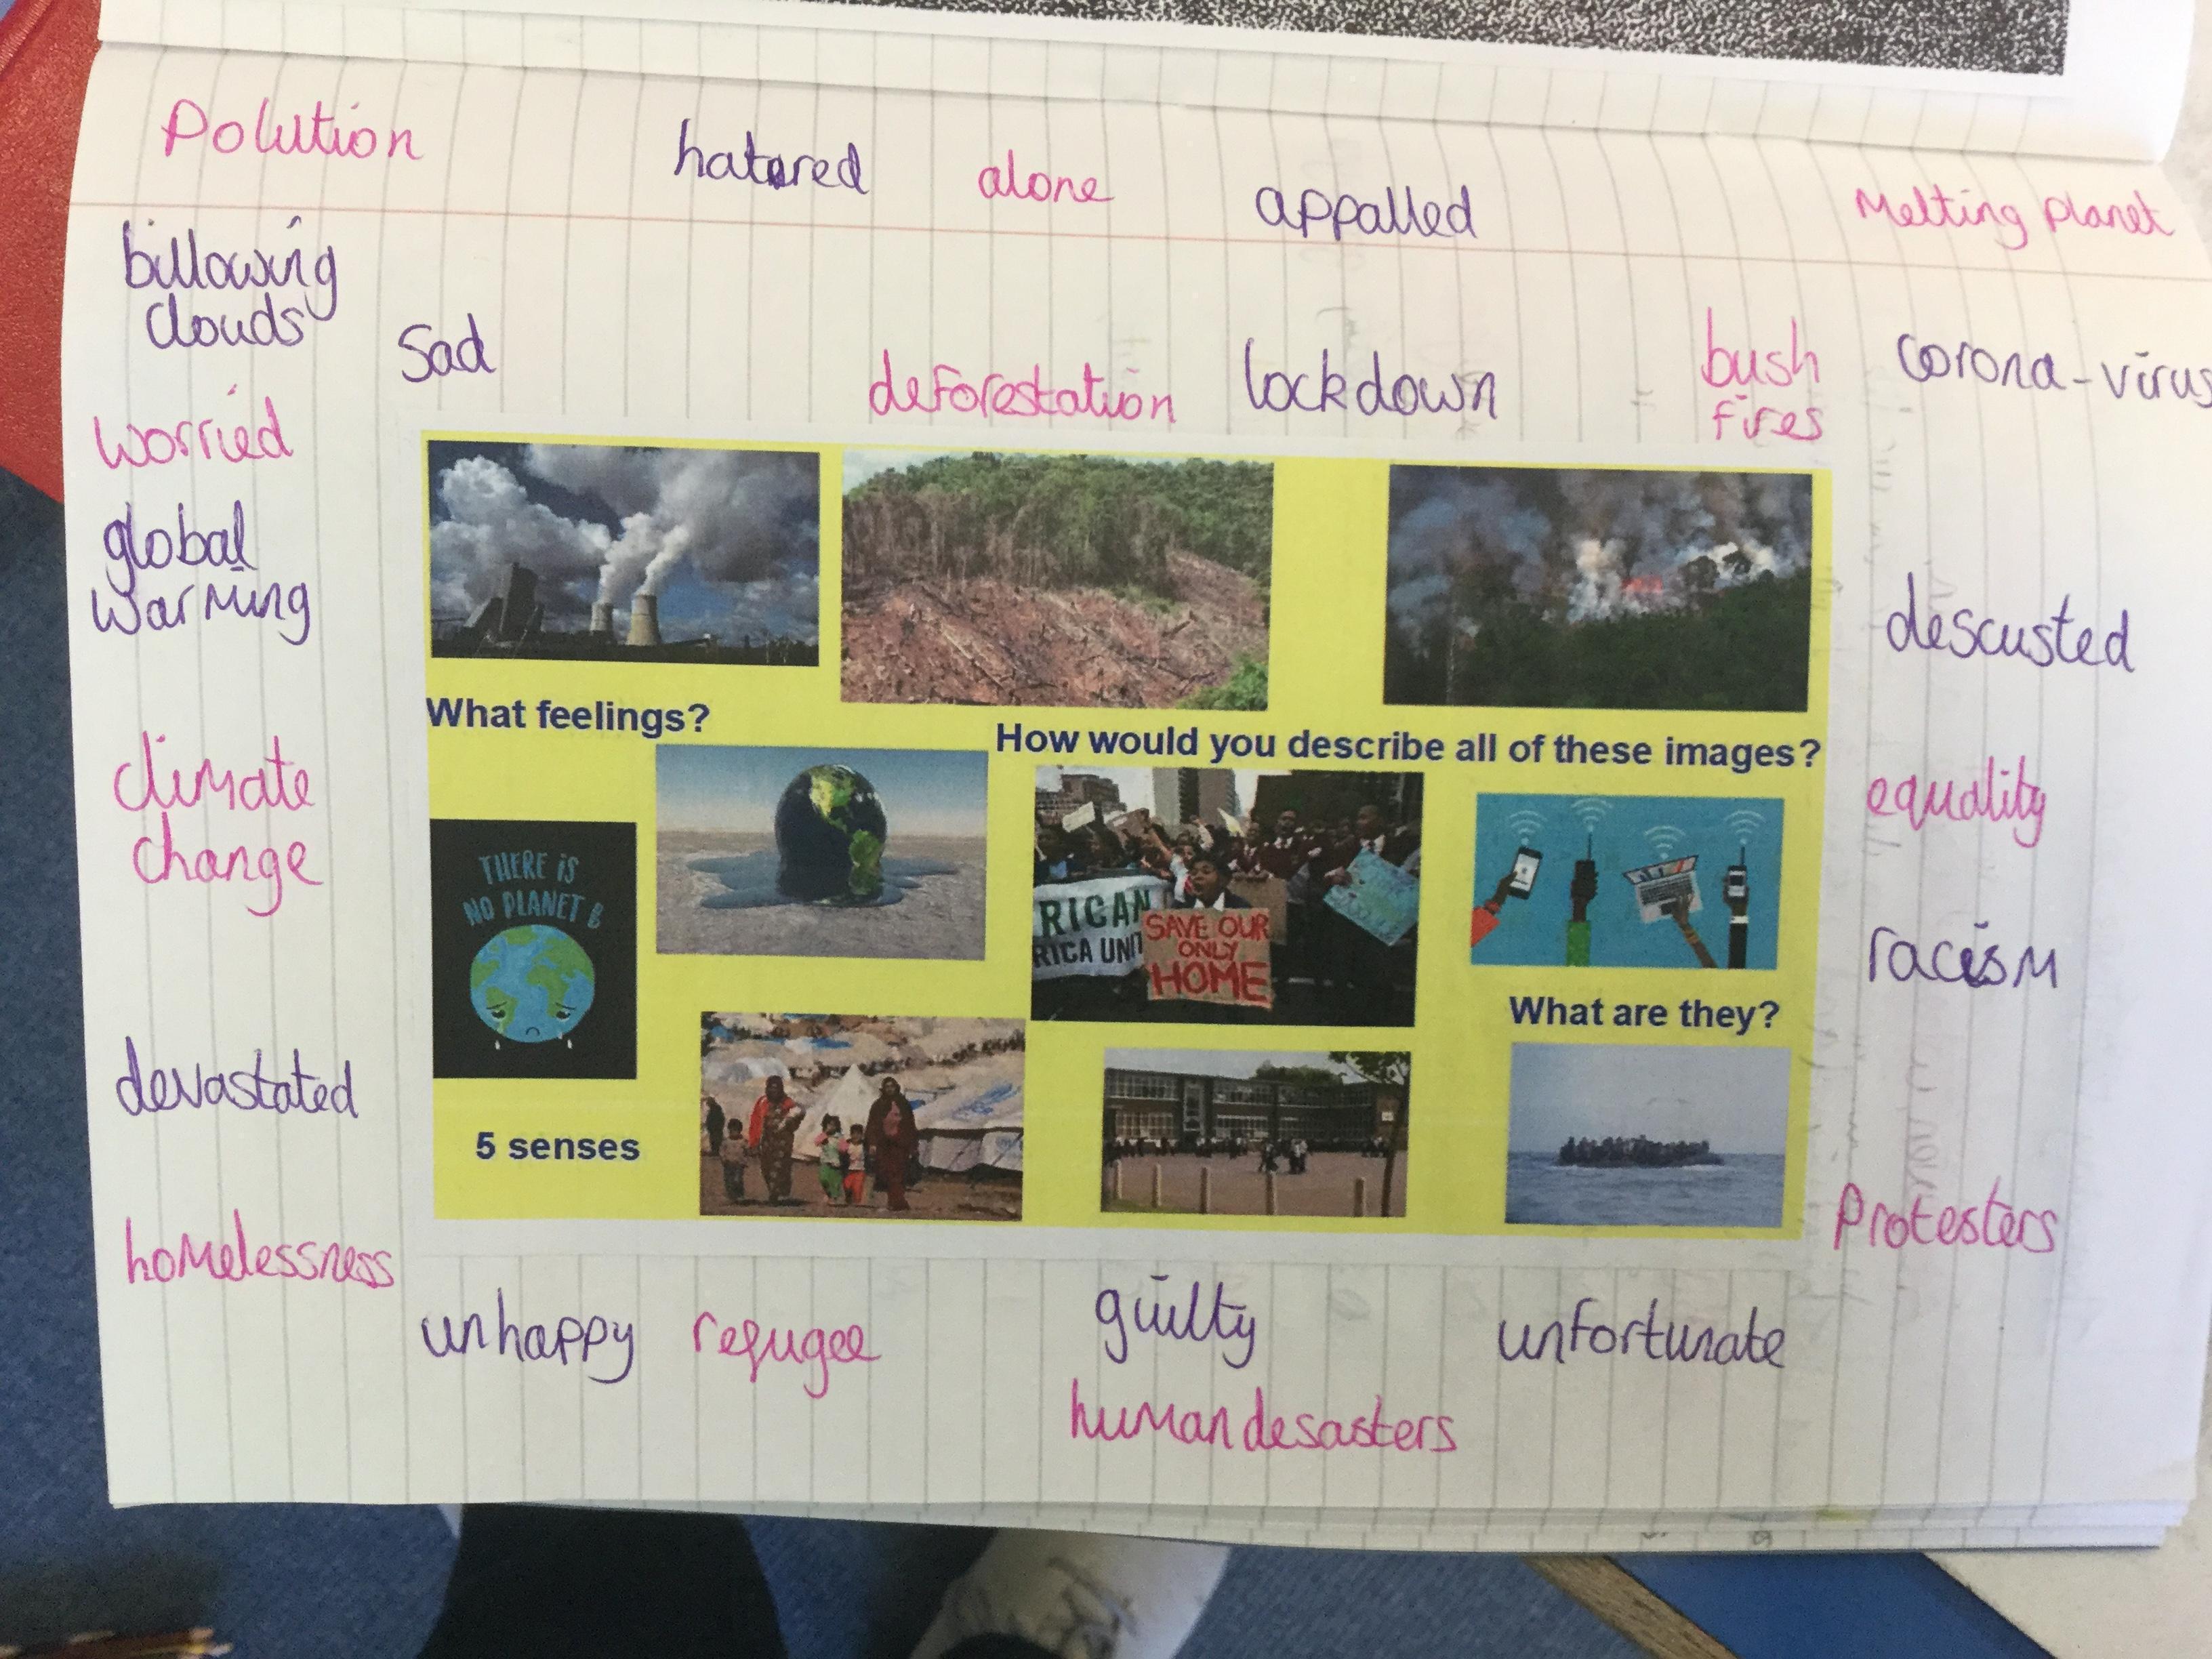 Polution
hatered
alone
appalled
Melting planet
billowing
clouds
Sad
deforestation
lockdown
bush
fires
corona-virus
worried
global
warming
descusted
What feelings?
How would you describe all of these images?
climate
change
equality
THERE iS
NO PLANET B
RICAN
RICA UNIT
SAVE OUR
ONLY
HOME
racism
What are they?
devastated
5 senses
Protesters
homelessness
unhappy
refugee
guilty
unfortunate
human desasters